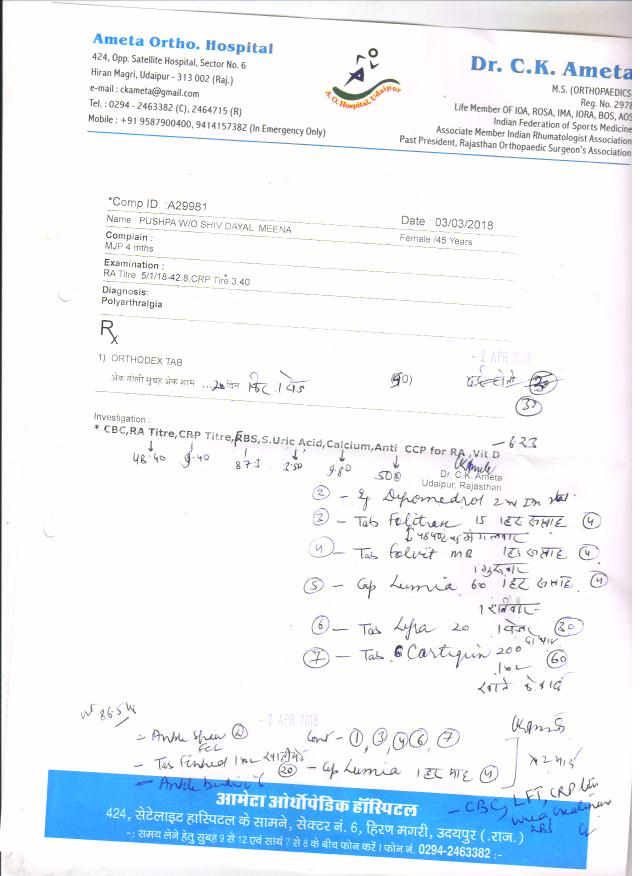 Ameta Ortho. Hospital
424, Opp. Satellite Hospital, Sector No. 6
Hiran Magri, Udaipur - 313 002 (Raj.)
e-mail : ckameta@gmail.com
Tel. : 0294 - 2463382 (C), 2464715 (R)
Mobile : +91 9587900400, 9414157382 (In Emergency Only)
A. O. Hospital, Udaipur
Dr. C.K. Ameta
M.S. (ORTHOPAEDICS
Reg. No. 2978
Life Member OF IOA, ROSA, IMA, IORA, BOS, AOS
Indian Federation of Sports Medicine
Associate Member Indian Rhumatologist Association
Past President, Rajasthan Orthopaedic Surgeon's Association
*Comp ID. :A29981
Name : PUSHPA W/O SHIV DAYAL MEENA
Date : 03/03/2018
Complain :
Female /45 Years
MJP 4 mths
Examination :
RA Titre 5/1/18-42.8,CRP Titre 3.40
Diagnosis:
Polyarthralgia
Rx
- 2 APR 2018
1) ORTHODEX TAB
अेक गोली सुबह अेक शाम ...20 दिन
30
Investigation :
* CBC,RA Titre,CRP Titre,RBS,S.Uric Acid,Calcium,Anti CCP for RA ,Vit D - 623
48.40 9.40 873 3.50 9.80 500
Dr. C.K. Ameta
Udaipur, Rajasthan
2 - Depomedrol 2
3 - Tab Folitrax 15 1 हर सप्ताह 4
4 - Tab Folvit 1 हर सप्ताह 4
5 - Cap Lumia 60 1 हर सप्ताह 4
6 - Tab Lefra 20 30
7 - Tab Cartiquin 200 60
खाने के बाद
wt 86.5
- 2 APR 2018
Cont - 1, 3, 4, 6, 7
- Tab 20 - Cap Lumia 1 हर माह 4
- Ankle
- CBC, LFT, CRP
आमेटा ऑर्थोपेडिक हॉस्पिटल
424, सेटेलाइट हास्पिटल के सामने, सेक्टर नं. 6, हिरण मगरी, उदयपुर (.राज.)
-: समय लेने हेतु सुबह 9 से 12 एवं सायं 7 से 8 के बीच फोन करें । फोन नं. 0294-2463382 :-